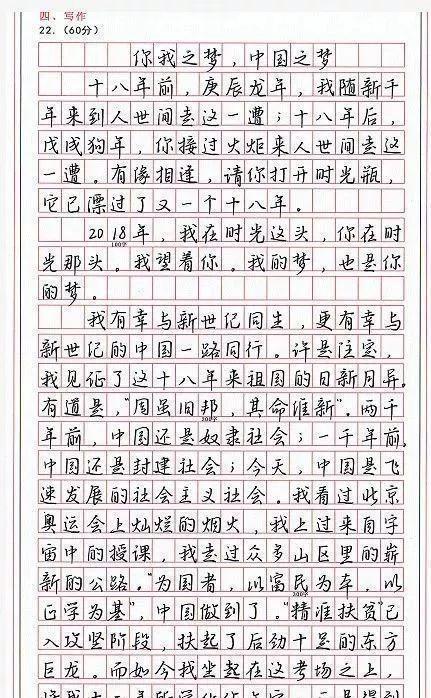 四、写作
22.（60分）
你我之梦，中国之梦
十八年前，庚辰龙年，我随新千
年来到人世间走这一遭；十八年后，
戊戌狗年，你接过火炬来人世间走这
一遭。有缘相逢，请你打开时光瓶，
它已漂过了又一个十八年。
2018年，我在时光这头，你在时
100字
光那头。我望着你。我的梦，也是你
的梦。
我有幸与新世纪同生，更有幸与
新世纪的中国一路同行。许是注定，
我见证了这十八年来祖国的日新月异。
有道是，“周虽旧邦，其命维新”。两千
200字
年前，中国还是奴隶社会；一千年前，
中国还是封建社会；今天，中国是飞
速发展的社会主义社会。我看过北京
奥运会上灿烂的烟火，我上过来自宇
宙中的授课，我走过众多山区里的崭
新的公路。“为国者，以富民为车，以
300字
正学为基”，中国做到了。“精准扶贫”已
入攻坚阶段，扶起了后劲十足的东方
巨龙。而如今我坐起在这考场之上，